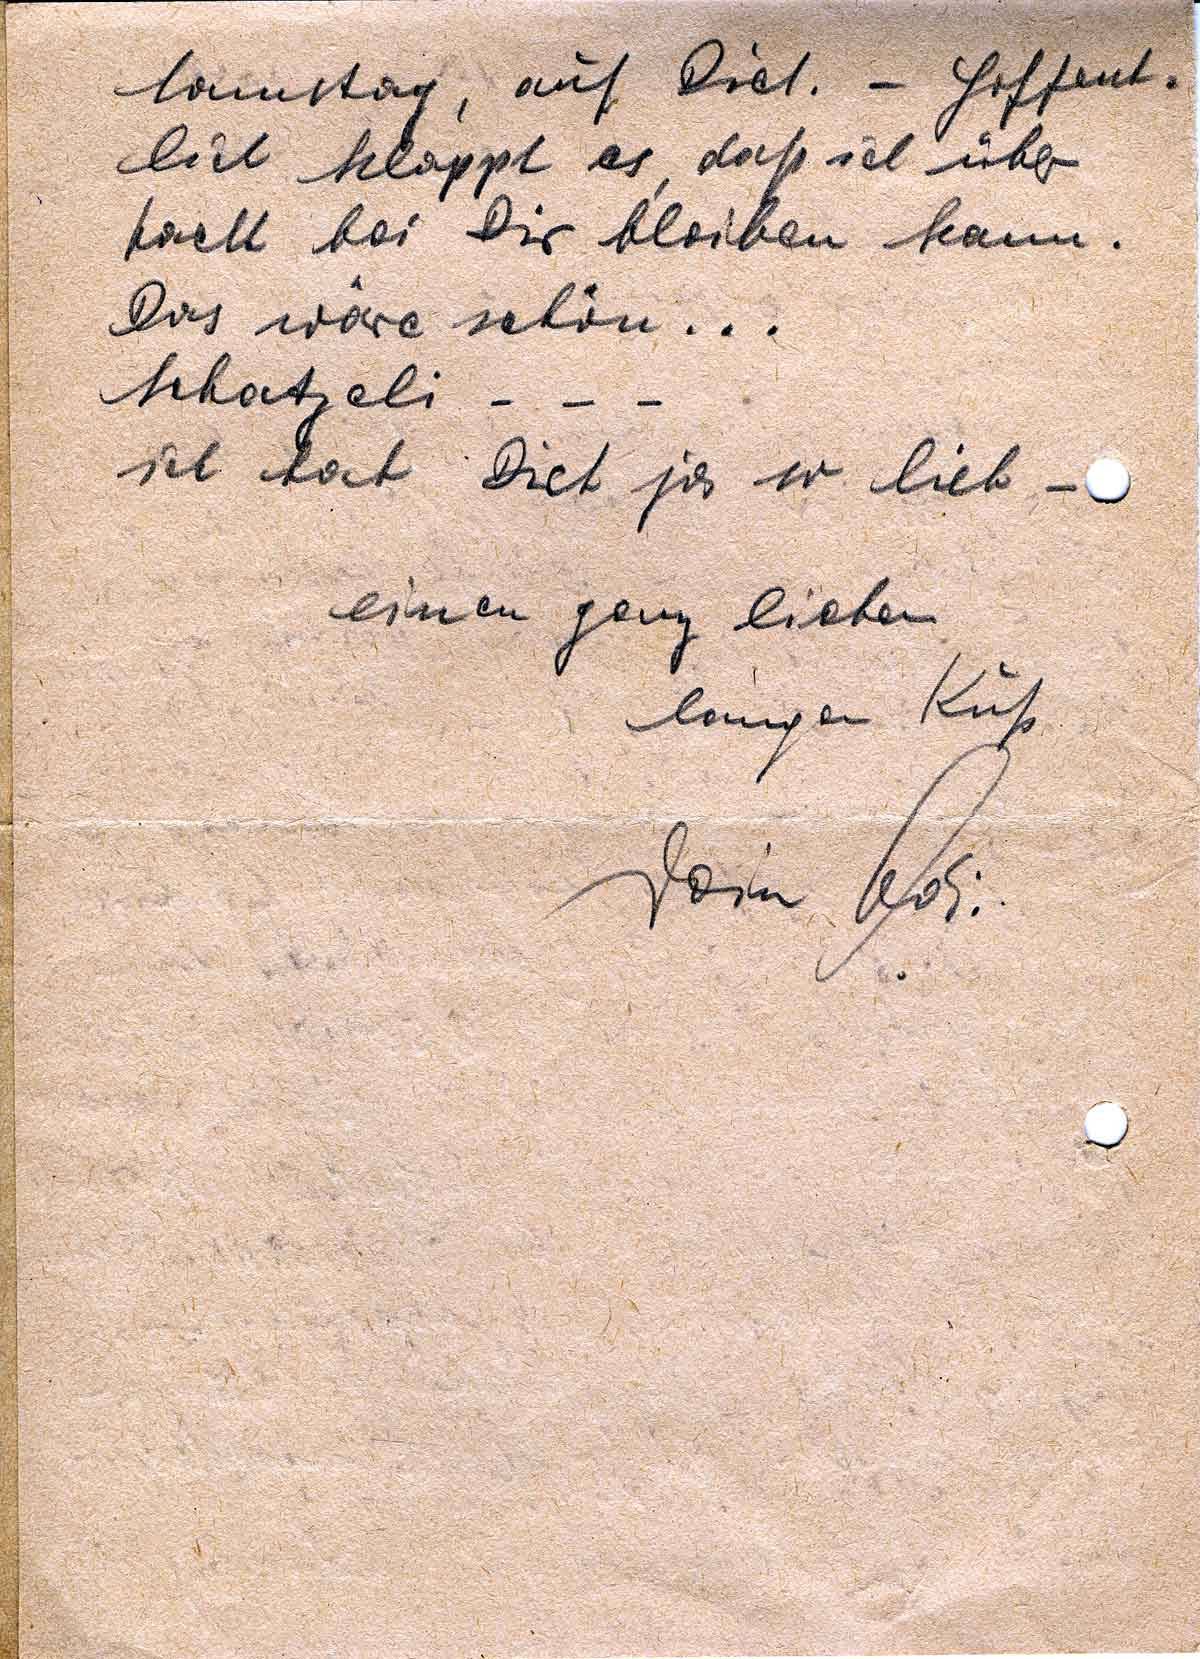 Samstag, auf Dich. – Hoffent-
lich klappt es, daß ich über
Nacht bei Dir bleiben kann.
Das wäre schön...
Schatzeli – – –
ich hab Dich ja so lieb –
einen ganz lieben
langen Kuß
Dein